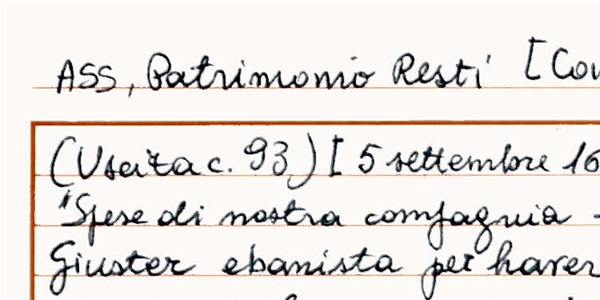 ASS, Patrimonio Resti [Cou
(Uscita c. 93) [ 5 settembre 16
"Spese di nostra compagnia -
Giuster ebanista per haver